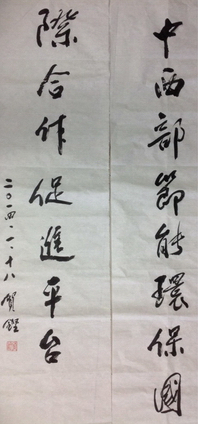 中西部節能環保國
際合作促進平台
二〇一四·一·十八 賀鏗